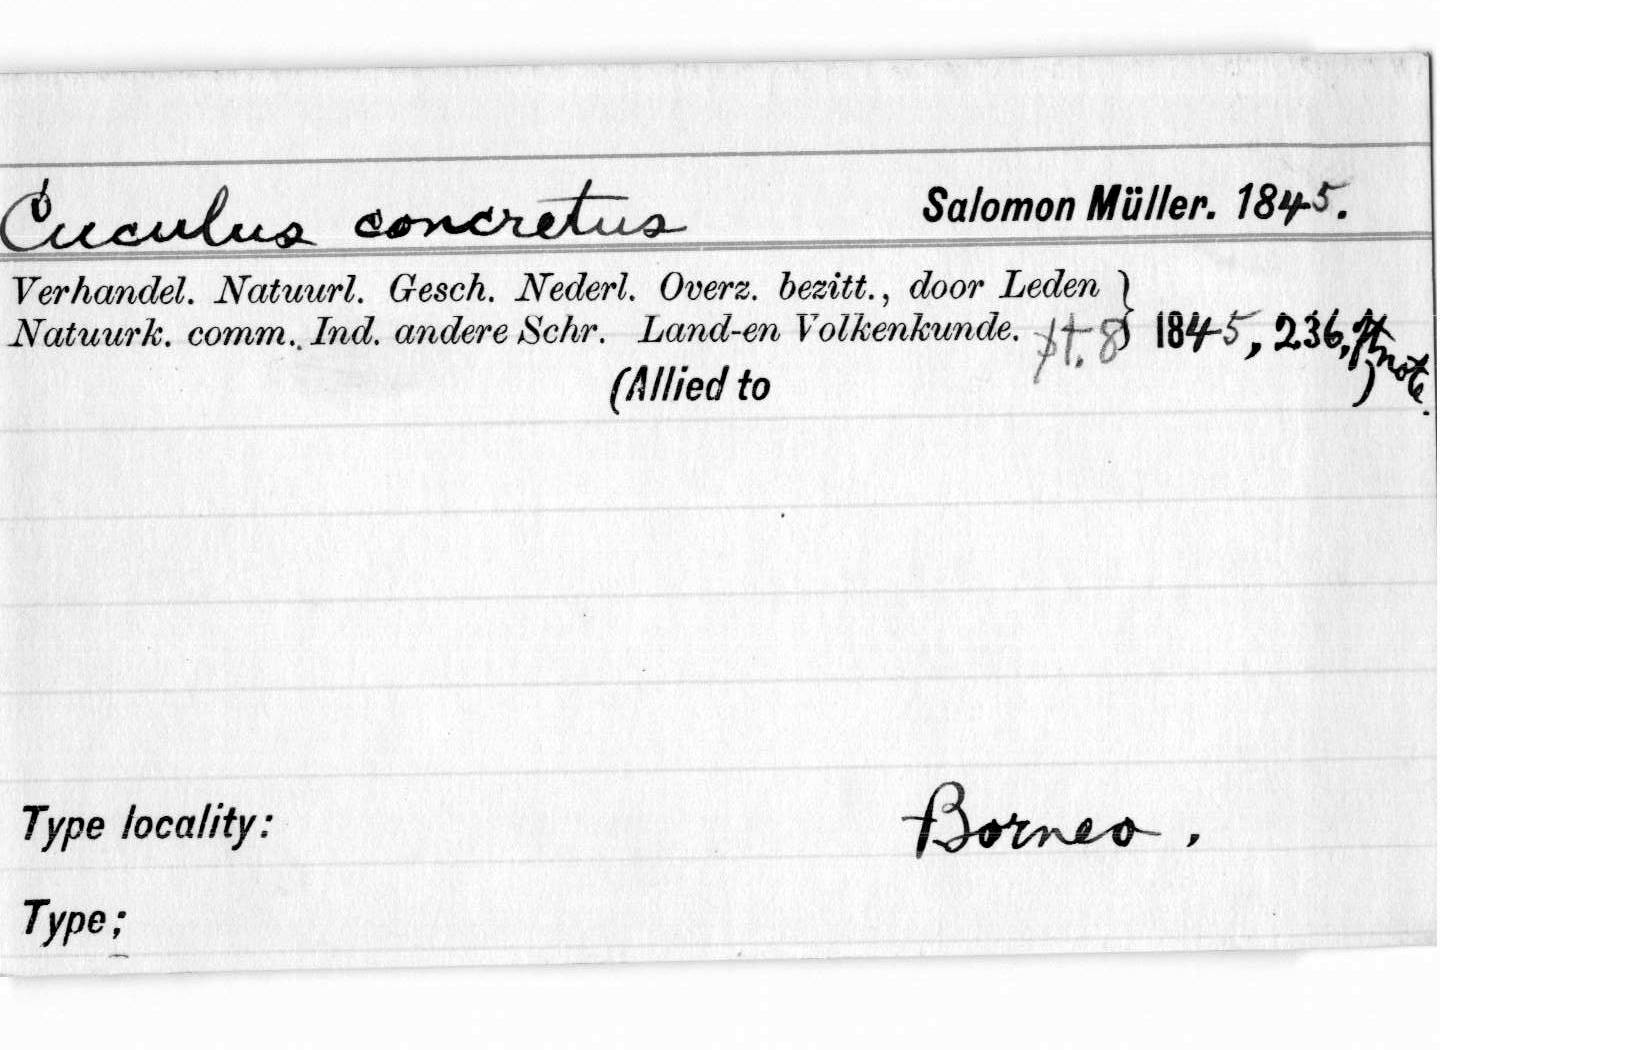 Cuculus concretus Salomon Müller. 1845.
Verhandel. Natuurl. Gesch. Nederl. Overz. bezitt., door Leden }
Natuurk. comm. Ind. andere Schr. Land-en Volkenkunde. pt. 8 1845, 236, ftnote.
(Allied to )
Type locality: Borneo.
Type;